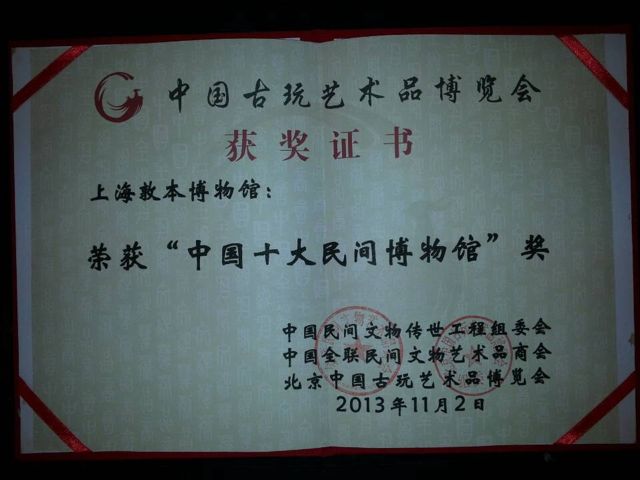 中国古玩艺术品博览会
获奖证书
上海敦本博物馆：
荣获“中国十大民间博物馆”奖
中国民间文物传世工程组委会
中国全联民间文物艺术品商会
北京中国古玩艺术品博览会
2013年11月2日